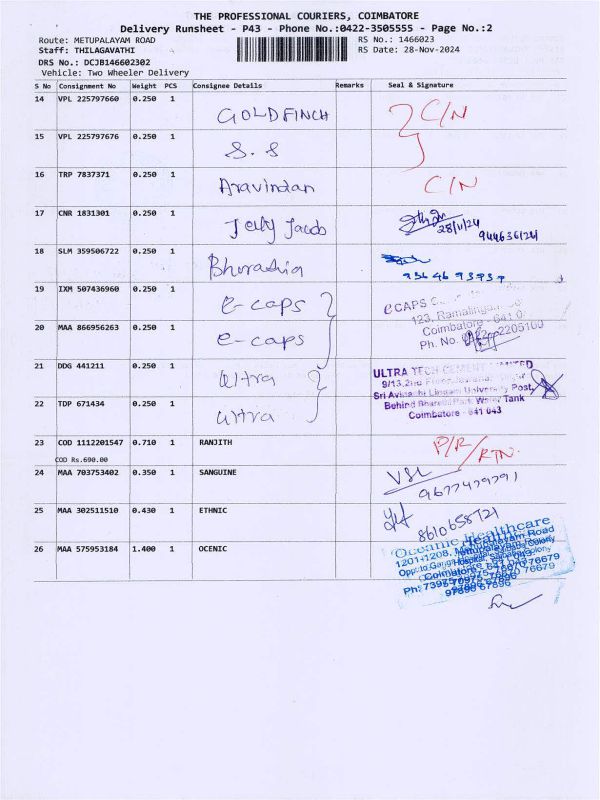 THE PROFESSIONAL COURIERS, COIMBATORE
Delivery Runsheet - P43 - Phone No.:0422-3505555 - Page No.:2
Route: METUPALAYAM ROAD RS No.: 1466023
Staff: THILAGAVATHI RS Date: 28-Nov-2024
DRS No.: DCJB146602302
Vehicle: Two Wheeler Delivery
S No Consignment No Weight PCS Consignee Details Remarks Seal & Signature
14 VPL 225797660 0.250 1 GOLDFINCH C/N
15 VPL 225797676 0.250 1 S.S
16 TRP 7837371 0.250 1 Aravindan C/N
17 CNR 1831301 0.250 1 Jelly Jacob 28/11/24
18 SLM 359506722 0.250 1
19 IXM 507436960 0.250 1 e-caps
20 MAA 866956263 0.250 1 e-caps
eCAPS
123, Ramalinga
Coimbatore - 641 0
Ph. No. 2205100
21 DDG 441211 0.250 1 Ultra
22 TDP 671434 0.250 1 Ultra
ULTRA TECH CEMENT LIMITED
9/13, 2nd Floor
Sri Avinashi Lingam University Post,
Behind Bharathi Park Water Tank
Coimbatore - 641 043
23 COD 1112201547 0.710 1 RANJITH P/R/RTN.
COD Rs.690.00
24 MAA 703753402 0.350 1 SANGUINE
25 MAA 302511510 0.430 1 ETHNIC
26 MAA 575953184 1.400 1 OCENIC
Oceanic Healthcare
1201-1208, Mettupalayam Road
Coimbatore